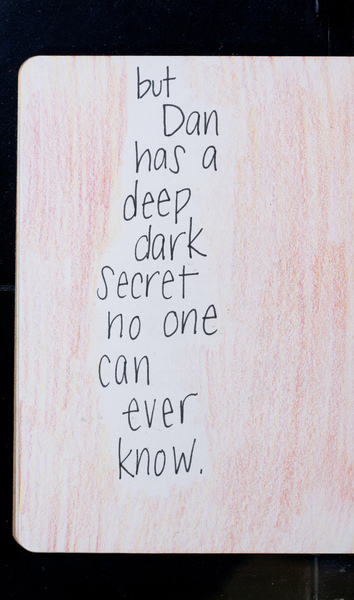 but
Dan
has a
deep
dark
secret
no one
can
ever
know.